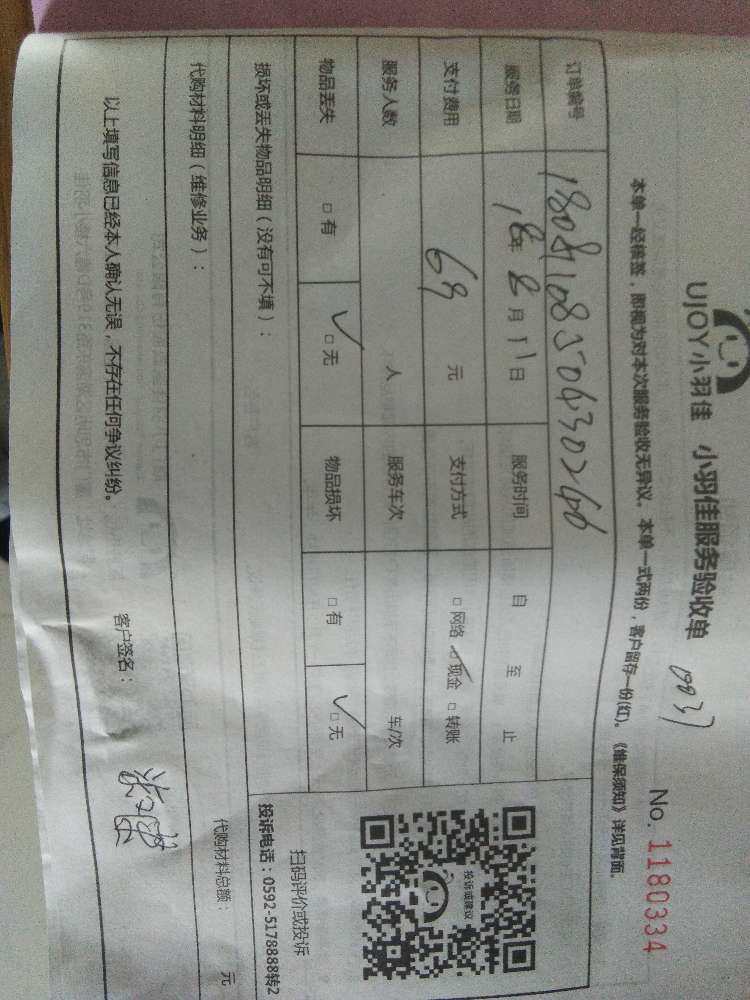 UJOY小羽佳 小羽佳服务验收单 0837
No. 1180334
本单一经核签，即视为对本次服务验收无异议。本单一式两份，客户留存一份(红)。《维保须知》详见背面。
订单编号 180811083506430266
服务日期 18年 8月 11日 服务时间 自 至 止
支付费用 69 元 支付方式 □网络 ☑现金 □转账
服务人数 人 服务车次 车/次
物品丢失 □有 ✓□无 物品损坏 □有 ✓□无
损坏或丢失物品明细（没有可不填）：
投诉或建议
扫码评价或投诉
投诉电话：0592-5178888转2
代购材料明细（维修业务）： 代购材料总额： 元
以上填写信息已经本人确认无误，不存在任何争议纠纷。 客户签名：